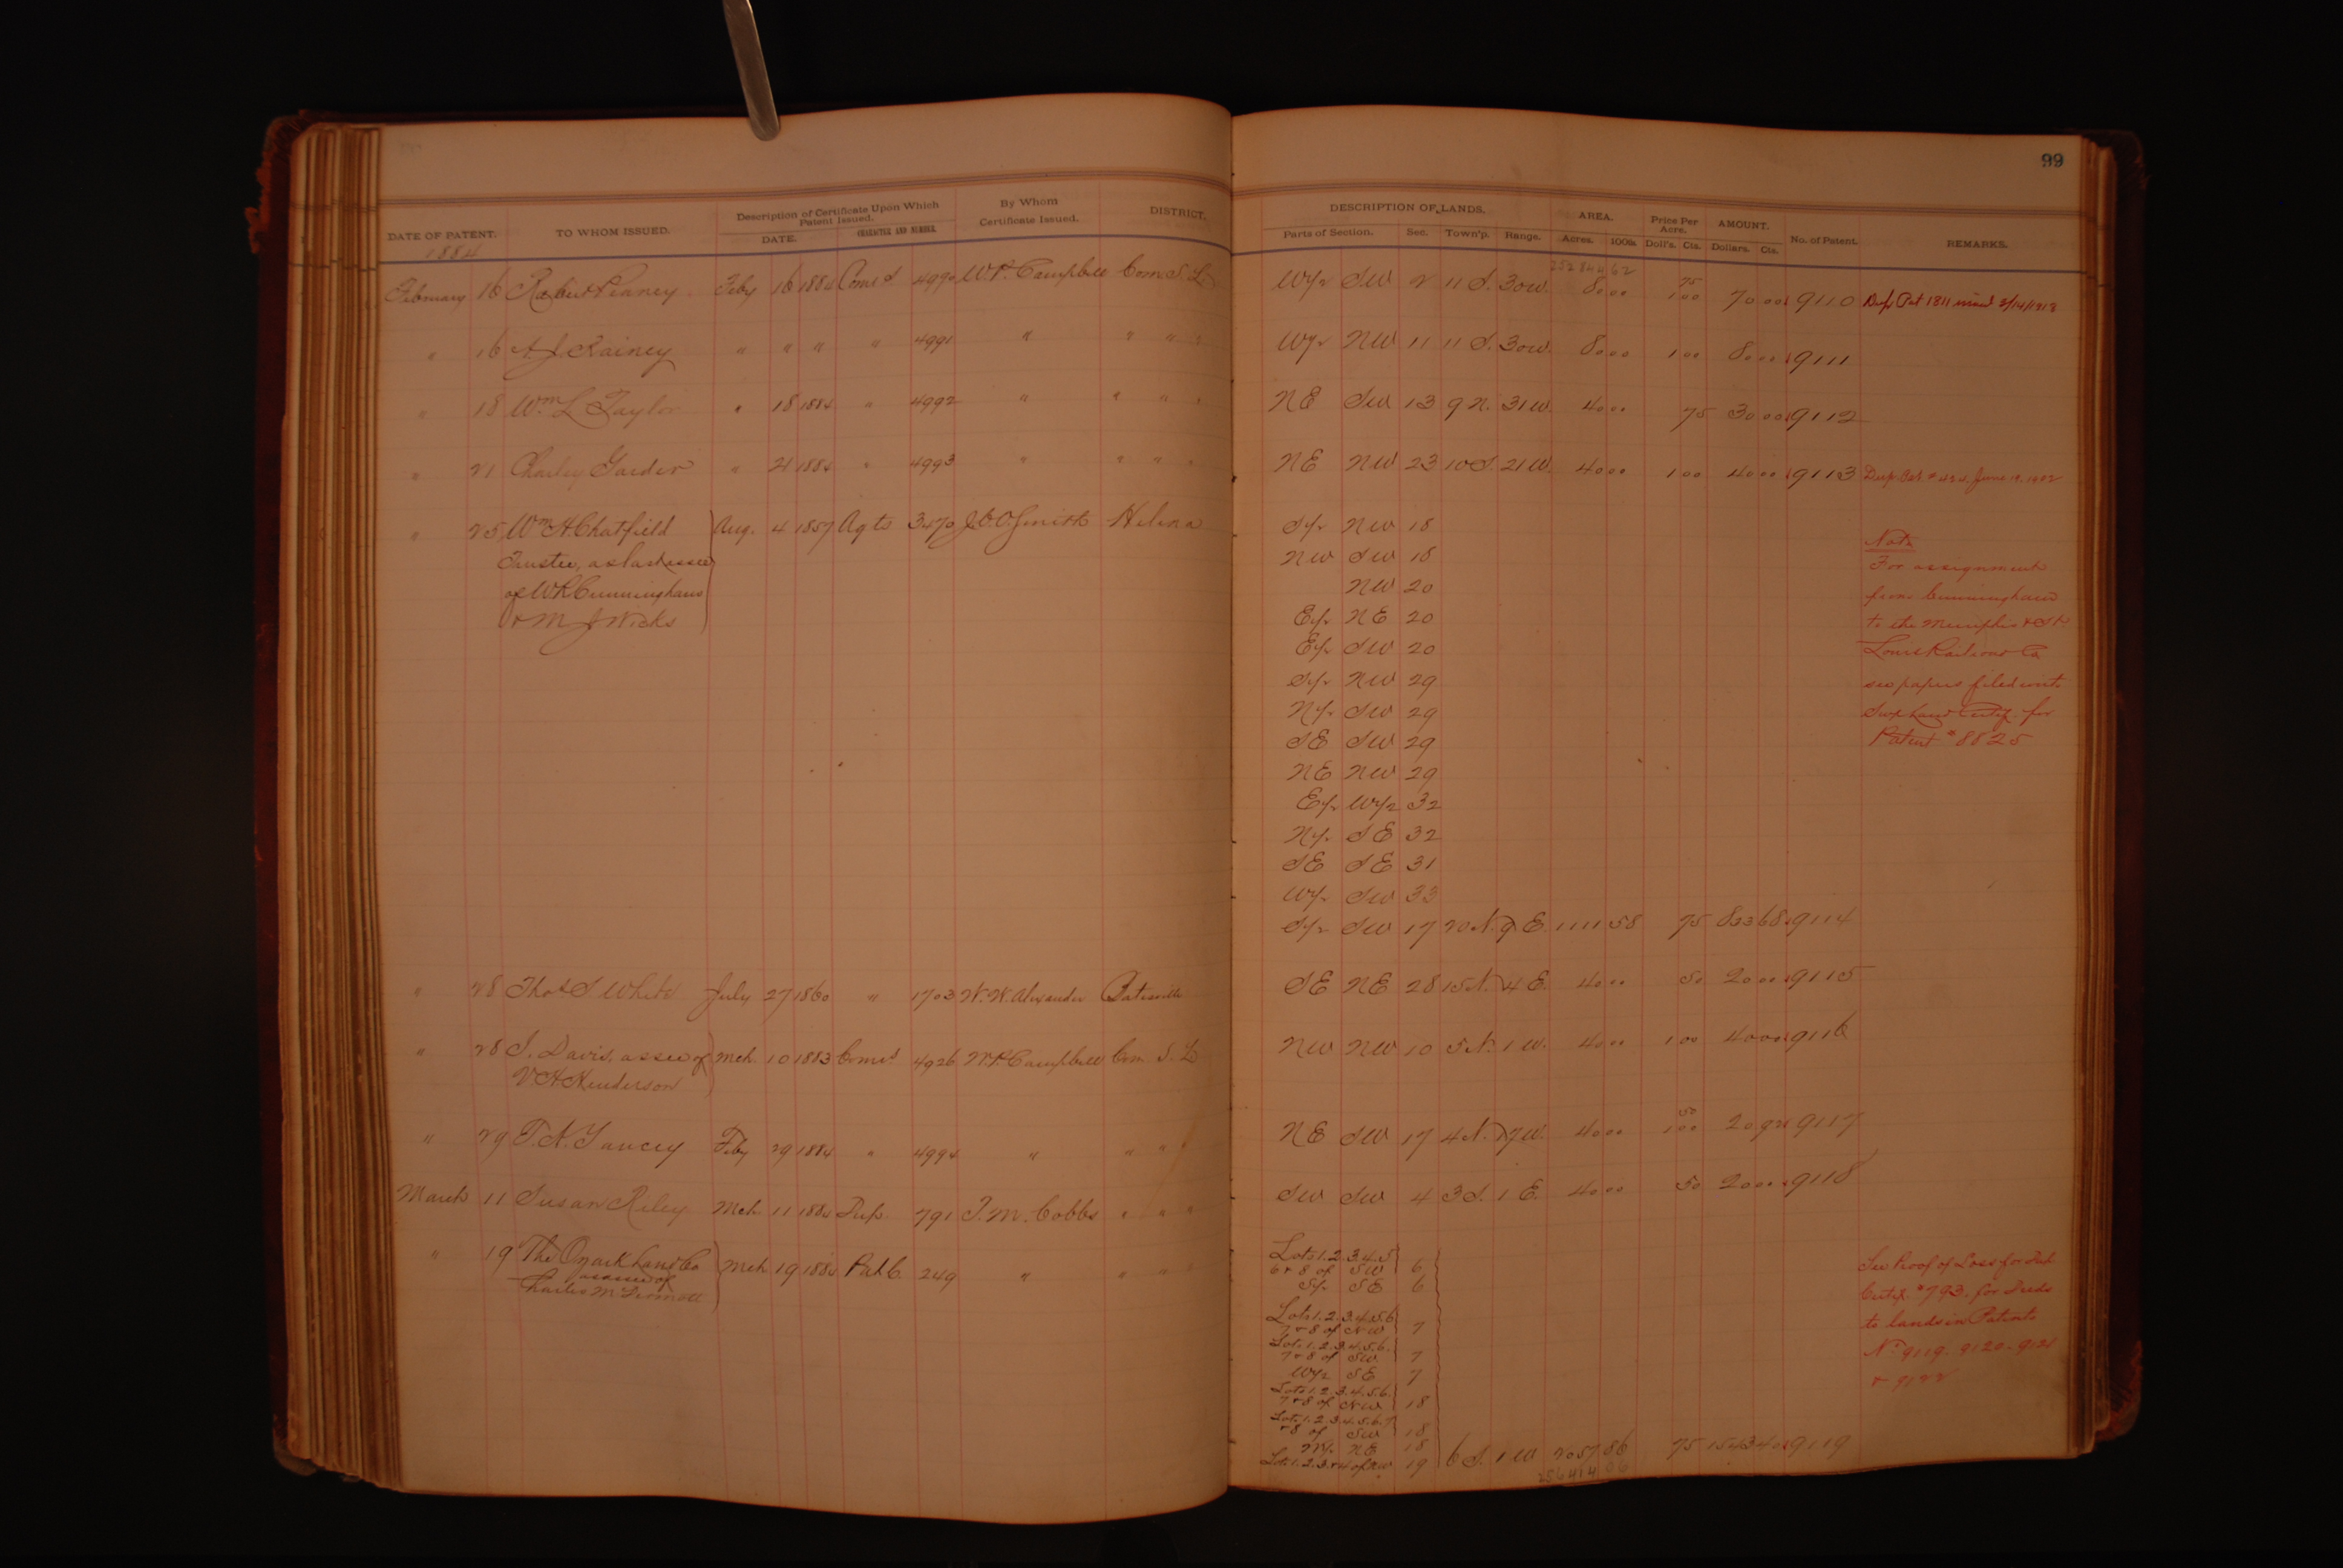 99
DATE OF PATENT. TO WHOM ISSUED. Description of Certificate Upon Which Patent Issued. DATE. CHARACTER AND NUMBER. By Whom Certificate Issued. DISTRICT. DESCRIPTION OF LANDS. Parts of Section. Sec. Town'p. Range. AREA. Acres. 100ths Price Per Acre. Doll's. Cts. AMOUNT. Dollars. Cts. No. of Patent. REMARKS.
1884
252844 62
February 16 Feby 16 1884 Coms' 4990 W.P. Campbell Com S. L W½ SW 2 11 S. 30W. 80 00 75 1 00 70 00 9110 Dup Pat 1811 issued 2/14/1918
" 16 A. J. Rainey " " " " 4991 " " " " W½ NW 11 11 S. 30W. 80 00 1 00 80 00 9111
" 18 Wm L Taylor " 18 1884 " 4992 " " " " NE SW 13 9 N. 31W. 40 00 75 30 00 9112
" 21 Charley " 21 1884 " 4993 " " " " NE NW 23 10 S. 21W. 40 00 1 00 40 00 9113 Dup. Pat. June 19. 1902
" 25 Wm H Chatfield Aug. 4 1857 Agts 3470 J.C.O. Smith Helena S½ NW 18
Trustee, as last assee NW SW 18
of W R Cunningham NW 20
& M J Wicks E½ NE 20
E½ SW 20
S½ NW 29
N½ SW 29
SE SW 29
NE NW 29
E½ W½ 32
N½ SE 32
SE SE 31
W½ SW 33
S½ SW 17 20 N. 9 E. 1111 58 75 833 68 9114
Note
For assignment
from Cunningham
to the Memphis & St.
Louis Railroad Co
see papers filed with
Land Certif. for
Patent # 8825
" 28 Thos S White July 27 1860 " 1703 W. W. Alexander Batesville SE NE 28 15 N. 4 E. 40 00 50 20 00 9115
" 28 S. Davis, assee of Mch. 10 1883 Coms' 4926 W.P. Campbell Com S. L NW NW 10 5 N. 1 W. 40 00 1 00 40 00 9116
V. H. Henderson
" 29 T. N. Yancey Feby 29 1884 " 4994 " " " " NE SW 17 4 N. 17 W. 40 00 50 1 00 9117
March 11 Susan Riley Mch. 11 1884 Dup. 791 P. M. Cobbs " " " SW SW 4 3 S. 1 E. 40 00 50 20 00 9118
" 19 The Ozark Land Co Mch 19 1884 Pat C. 249 " " " " Lots 1. 2. 3. 4. 5
assee of 6 & 8 of SW 6
Charles M S½ SE 6
Lots 1. 2. 3. 4. 5. 6
7 & 8 of NW 7
Lots 1. 2. 3. 4. 5. 6.
7 & 8 of SW. 7
W½ SE 7
Lots 1. 2. 3. 4. 5. 6.
7 & 8 of NW 18
Lots 1. 2. 3. 4. 5. 6. 7
& 8 of SW 18
NE 18
Lots 1. 2. 3. & 4 of NW 19 6 S. 1 W 2057 86 75 1543 40 9119
256414 06
See Proof of Loss for
Certif. # 793. for Deeds
to Lands in Patents
No 9119. 9120. 9121
& 9122